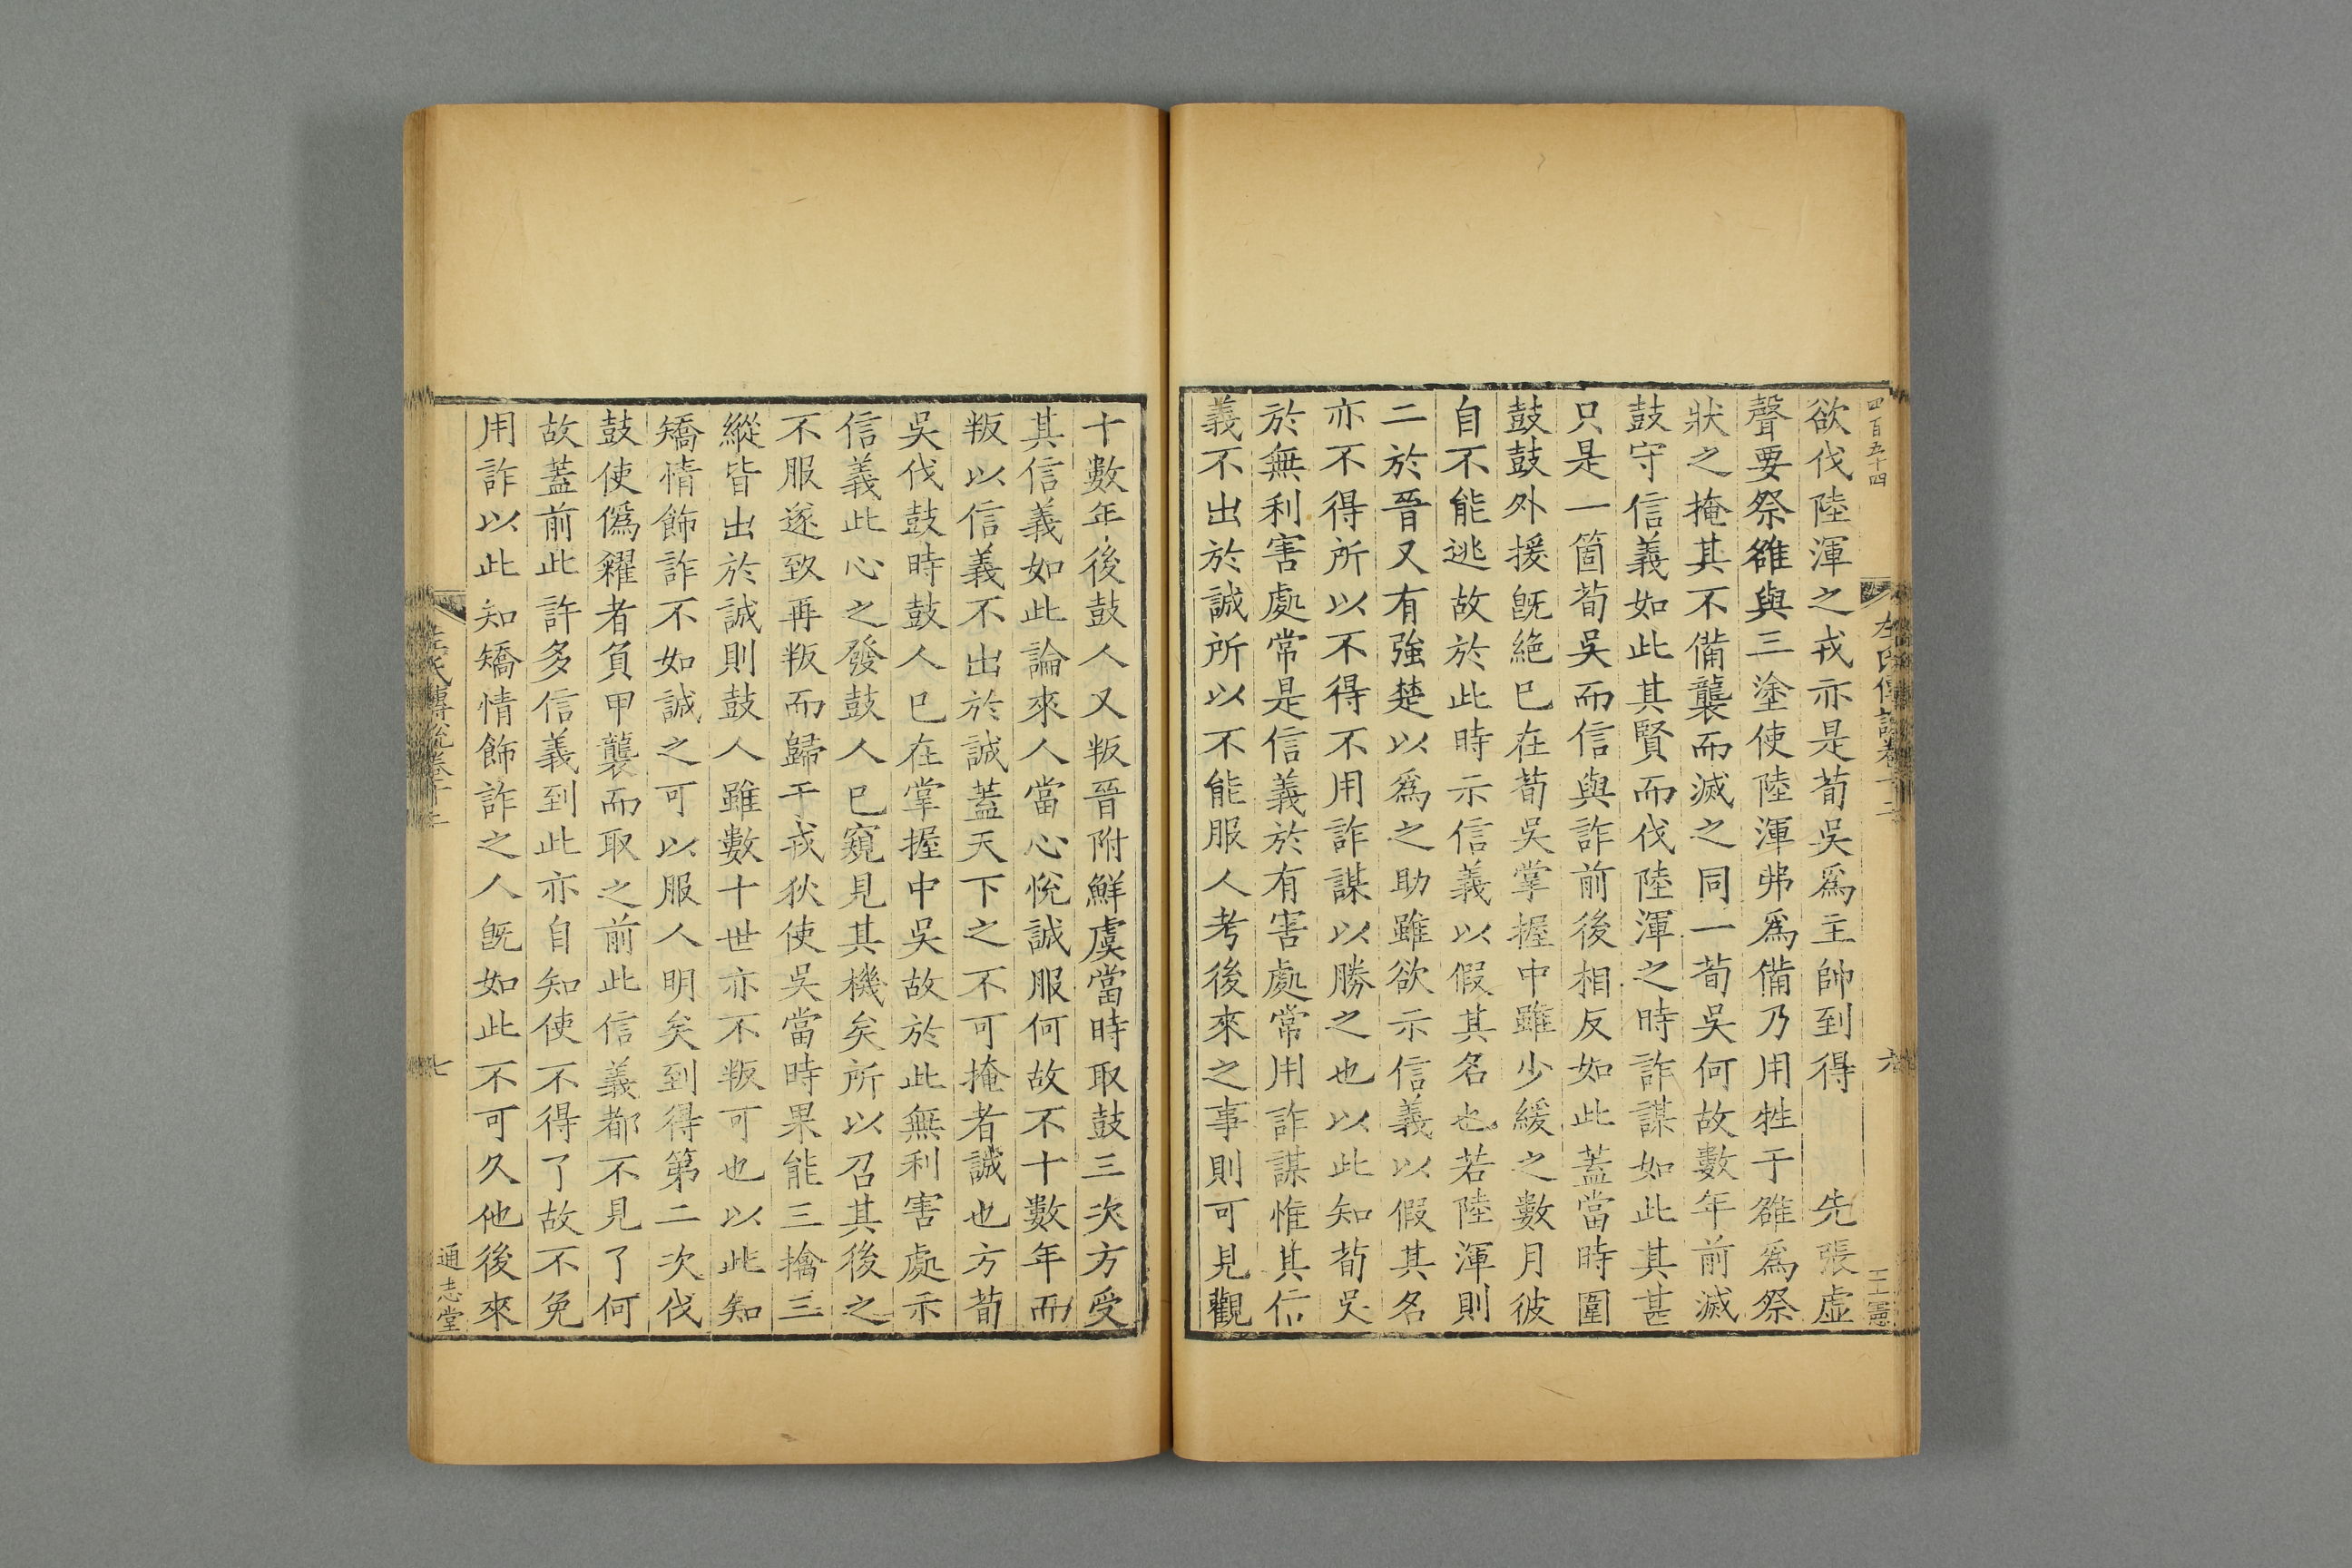 四百五十四
欲伐陸渾之戎亦是荀吳爲主帥到得　先張虛
聲要祭雒與三塗使陸渾弗爲備乃用牲于雒爲祭
狀之掩其不備襲而滅之同一荀吳何故數年前滅
鼓守信義如此其賢而伐陸渾之時詐謀如此其甚
只是一箇荀吳而信與詐前後相反如此蓋當時圍
鼓鼓外援旣絶已在荀吳掌握中雖少緩之數月彼
自不能逃故於此時示信義以假其名也若陸渾則
二於晉又有強楚以爲之助雖欲示信義以假其名
亦不得所以不得不用詐謀以勝之也以此知荀吳
於無利害處常是信義於有害處常用詐謀惟其信
義不出於誠所以不能服人考後來之事則可見觀
左氏傳說卷十二
六
王憲
十數年後鼓人又叛晉附鮮虞當時取鼓三次方受
其信義如此論來人當心悅誠服何故不十數年而
叛以信義不出於誠蓋天下之不可掩者誠也方荀
吳伐鼓時鼓人已在掌握中吳故於此無利害處示
信義此心之發鼓人已窺見其機矣所以召其後之
不服遂致再叛而歸于戎狄使吳當時果能三擒三
縱皆出於誠則鼓人雖數十世亦不叛可也以此知
矯情飾詐不如誠之可以服人明矣到得第二次伐
鼓使僞糴者負甲襲而取之前此信義都不見了何
故蓋前此許多信義到此亦自知使不得了故不免
用詐以此知矯情飾詐之人旣如此不可久他後來
左氏傳說卷十二
七
通志堂